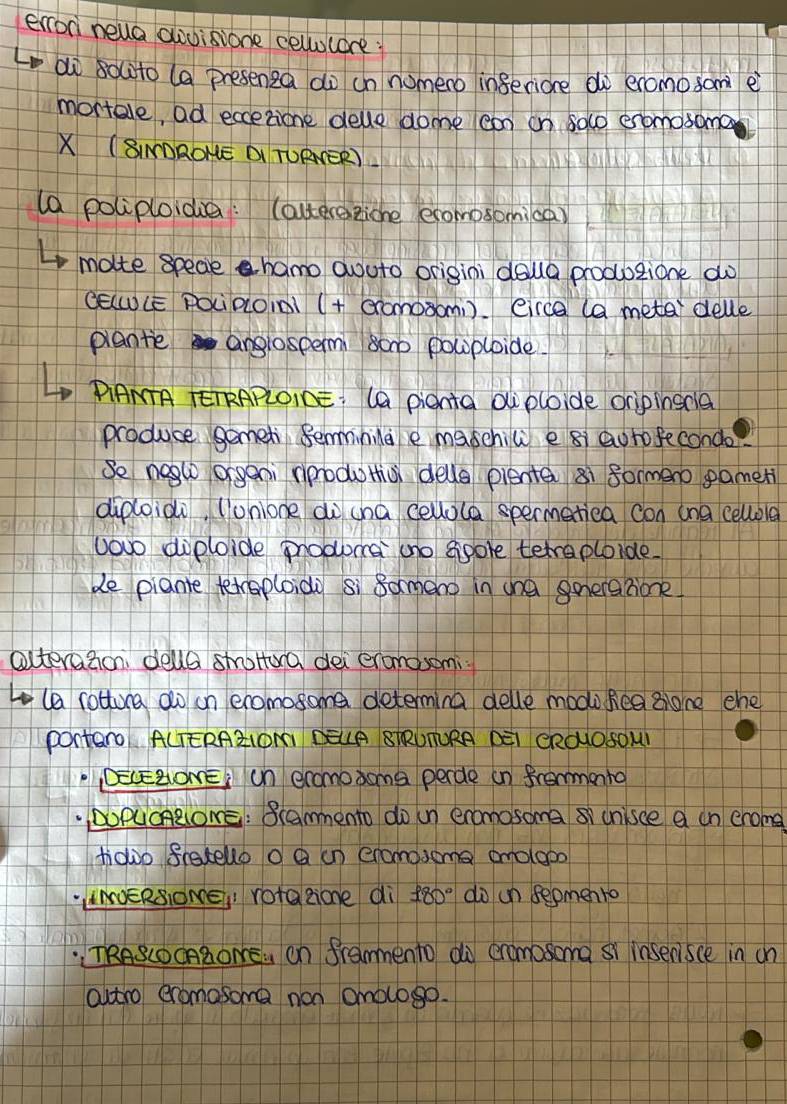 errori nella divisione cellulare:
↳ di solito la presenza di un numero inferiore di cromosomi è
mortale, ad eccezione delle donne con un solo cromosoma
X (SINDROME DI TURNER).
la poliploidia: (alterazione cromosomica)
↳ molte specie hanno avuto origini dalla produzione di
CELLULE POLIPLOIDI (+ cromosomi). Circa la metà delle
piante angiospermi sono poliploide.
↳ PIANTA TETRAPLOIDE: la pianta diploide originaria
produce gameti femminili e maschili e si autofeconda.
Se negli organi riproduttivi della pianta si formano gameti
diploidi, l'unione di una cellula spermatica con una cellula
uovo diploide produrrà uno zigote tetraploide.
Le piante tetraploidi si formano in una generazione.
alterazioni della struttura dei cromosomi:
↳ la rottura di un cromosoma determina delle modificazione che
portano ALTERAZIONI DELLA STRUTTURA DEI CROMOSOMI
• DELEZIONE: un cromosoma perde un frammento
• DUPLICAZIONE: frammento di un cromosoma si unisce a un croma
tidio fratello o a un cromosoma omologo
• INVERSIONE: rotazione di 180° di un segmento
• TRASLOCAZIONE: un frammento di cromosoma si inserisce in un
altro cromosoma non omologo.